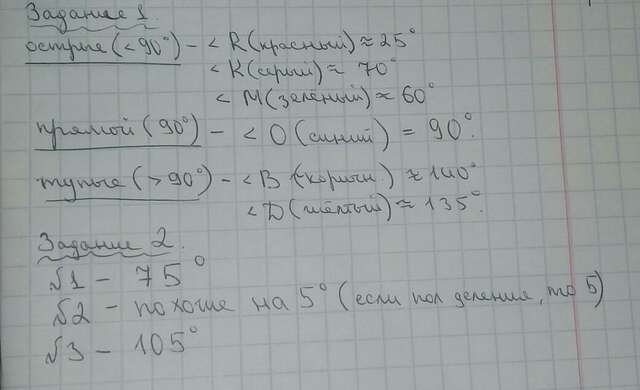 Задание 1.
острые (<90°) - <R(красный) ≈ 25°
<К(серый) ≈ 70°
<М(зелёный) ≈ 60°
прямой (90°) - <О(синий) = 90°.
тупые (>90°) - <В(коричн) ≈ 140°
<D(жёлтый) ≈ 135°.
Задание 2.
√1 - 75°
√2 - похоже на 5° (если пол деления, то 5)
√3 - 105°